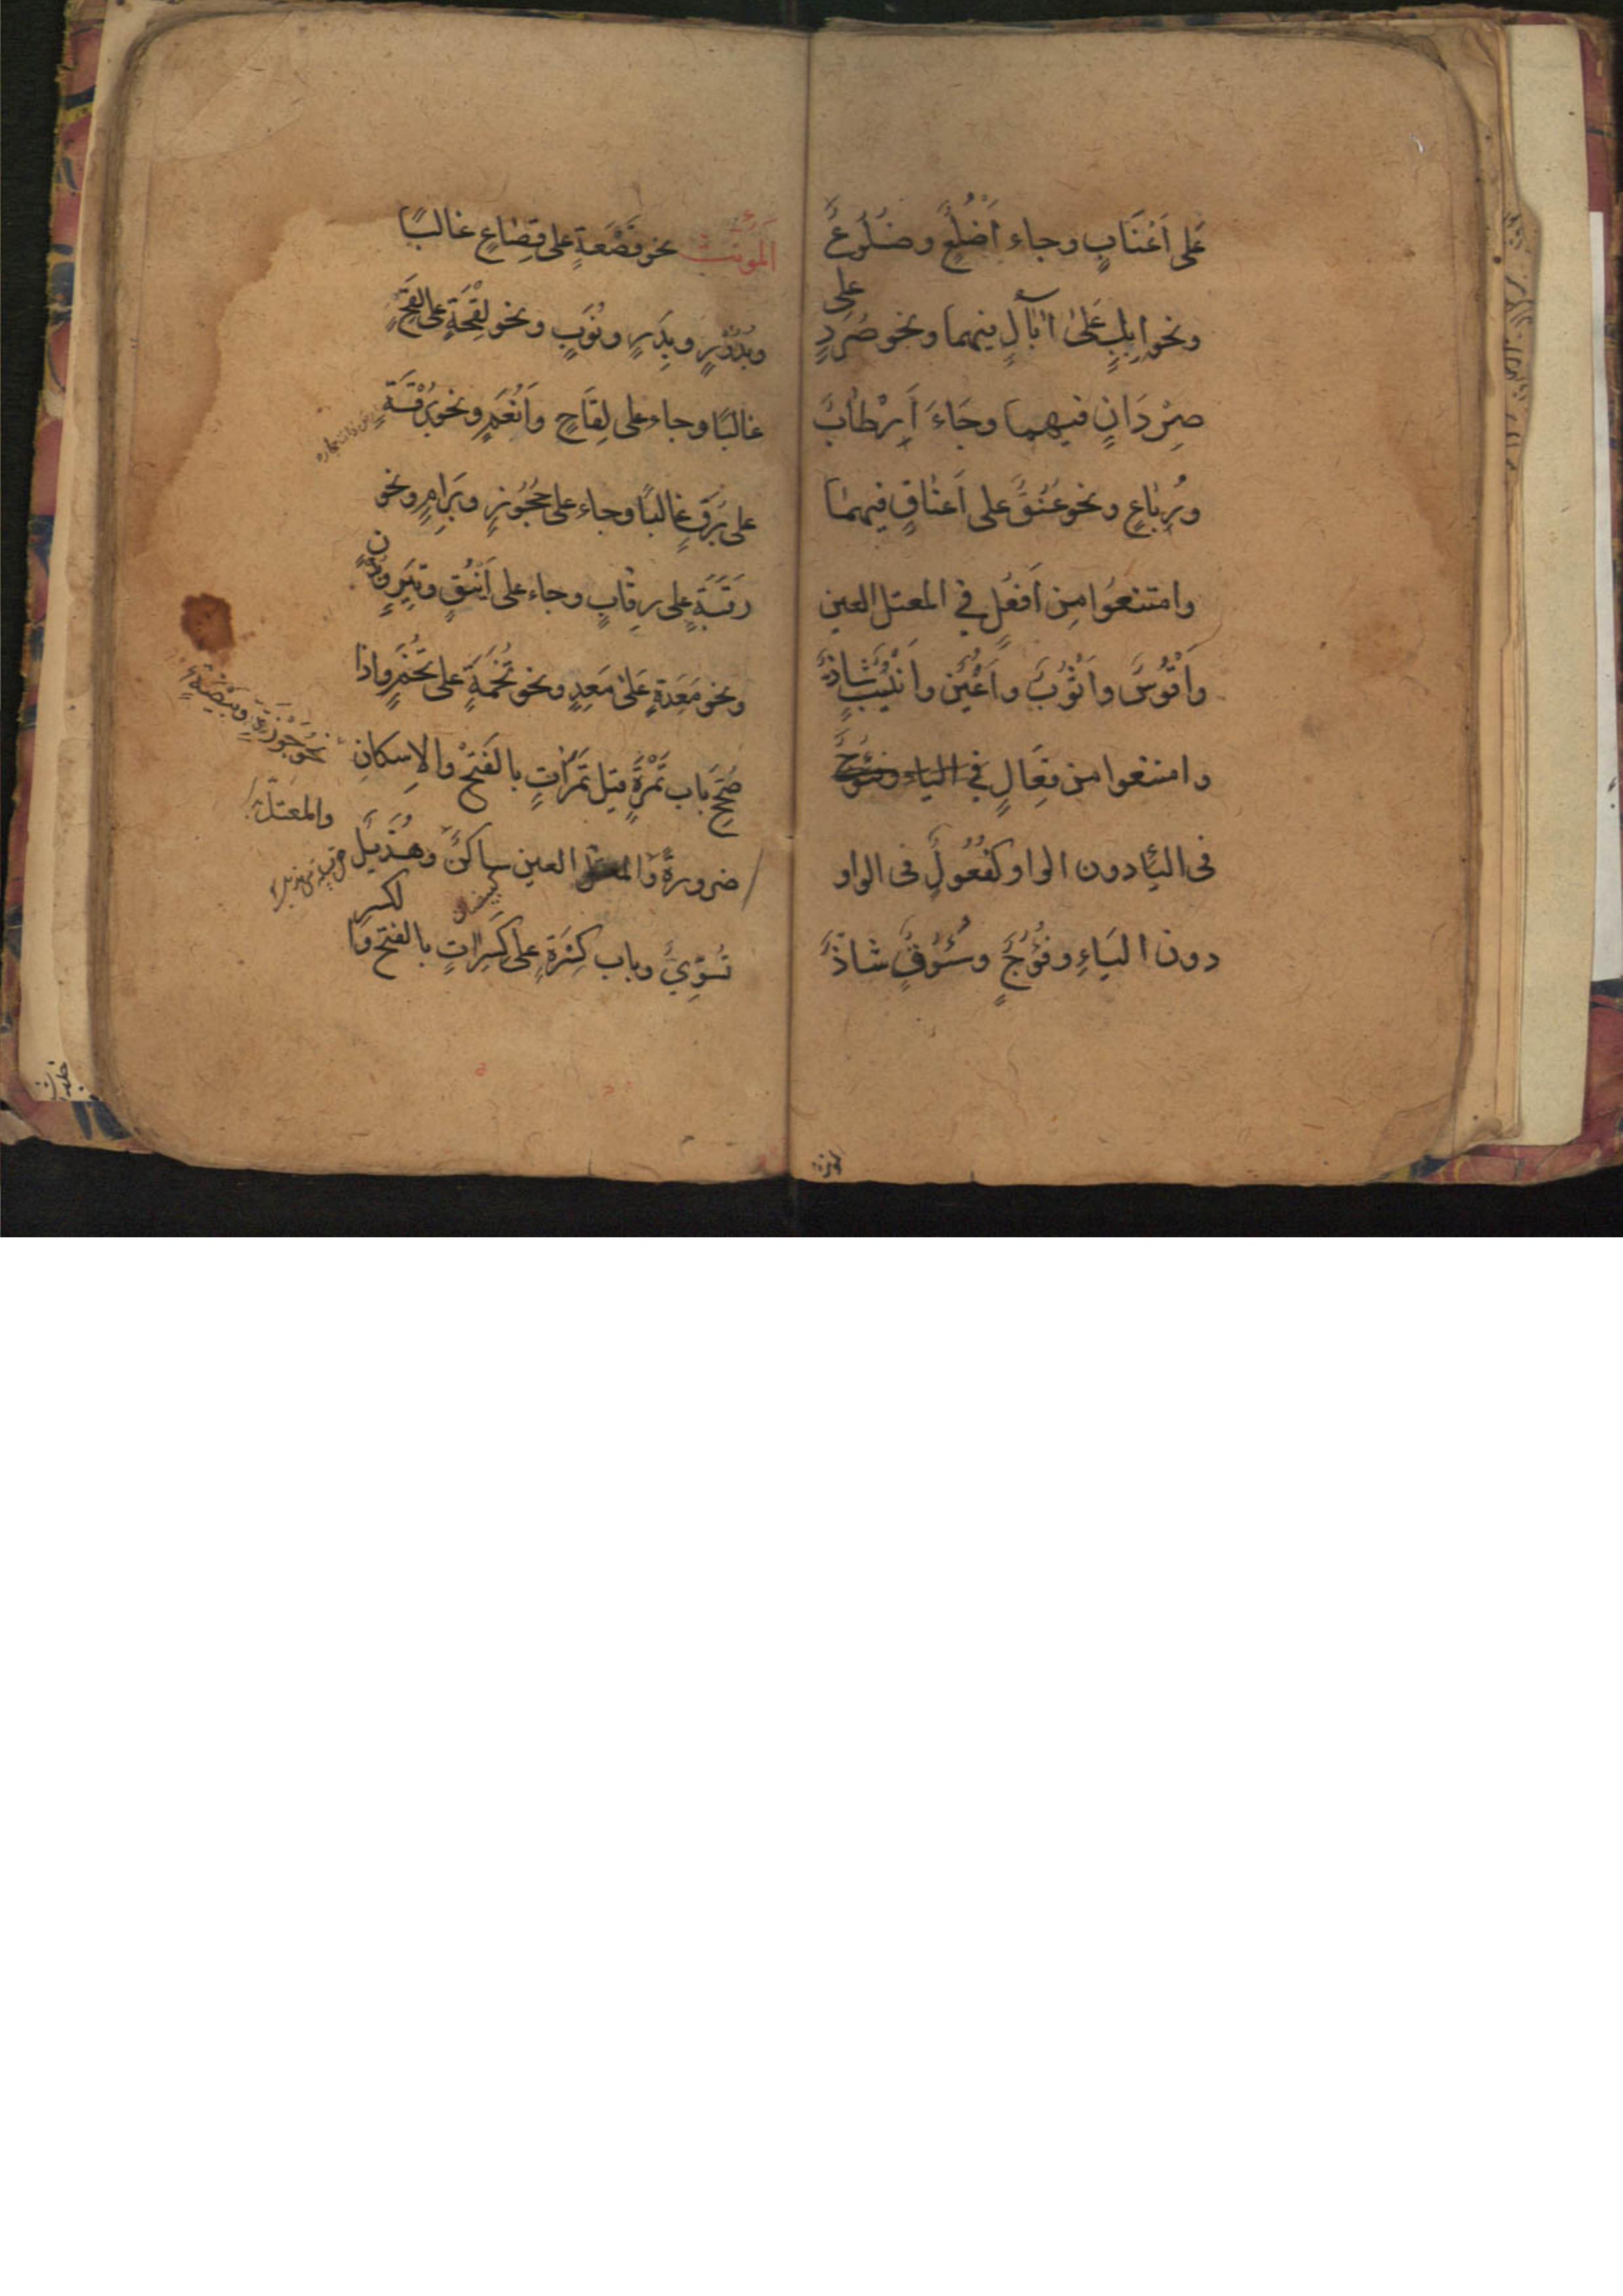 عَلى اَعْنَابٍ وجاء اَضْلُعٌ وضُلُوعٌ
ونحو اِبِلٍ عَلىٰ اٰبَالٍ فيهما ونحو صُرَدٍ على
صِرْدَانٍ فيهما وجَاءَ اَرْطَابٌ
ورِبَاعٍ ونحو عُنُقٍ على اَعْنَاقٍ فيهما
وامتنعُوا مِن اَفعُلٍ في المعتل العين
واَقْوُسٌ واَثْوُبٌ واَعْيُنٌ واَنْيُبٌ شاذٌّ
وامتنعوا من فِعَالٍ في الياء
فى الياءِ دون الواو كفُعُولٍ فى الواو
دون اليَاءِ وفُؤُجٌ وسُؤُقٌ شاذٌّ
المؤنث نحو قَصْعَةٍ على قِصَاعٍ غالبًا
وبُدُوْرٍ وبِدَرٍ ونُوَبٍ ونحو لِقْحَةٍ على لِقَحٍ
غالبًا وجاء على لِقَاحٍ واَنْعُمٍ ونحو بُرْقَةٍ
على بُرَقٍ غالبًا وجاء على حُجُوْزٍ وبِرَامٍ ونحو
رَقَبَةٍ على رِقَابٍ وجاء على اَيْنُقٍ وتِيَرٍ وبُدْنٍ
ونحو مَعِدَةٍ عَلىٰ مَعِدٍ ونحو تُخَمَةٍ على تُخَمٍ واذا
صُحِّحَ باب تَمْرَةٍ قيل تَمَرَاتٍ بالفَتْحِ والاِسكانِ
ضرورةً والمعتل العين ساكنٌ وهُذَيلٌ
تُسَوِّيْ وباب كِسْرَةٍ على كِسِرَاتٍ بالفتح والكسر
نحو جَوْزَةٍ وبَيْضَةٍ
والمعتل